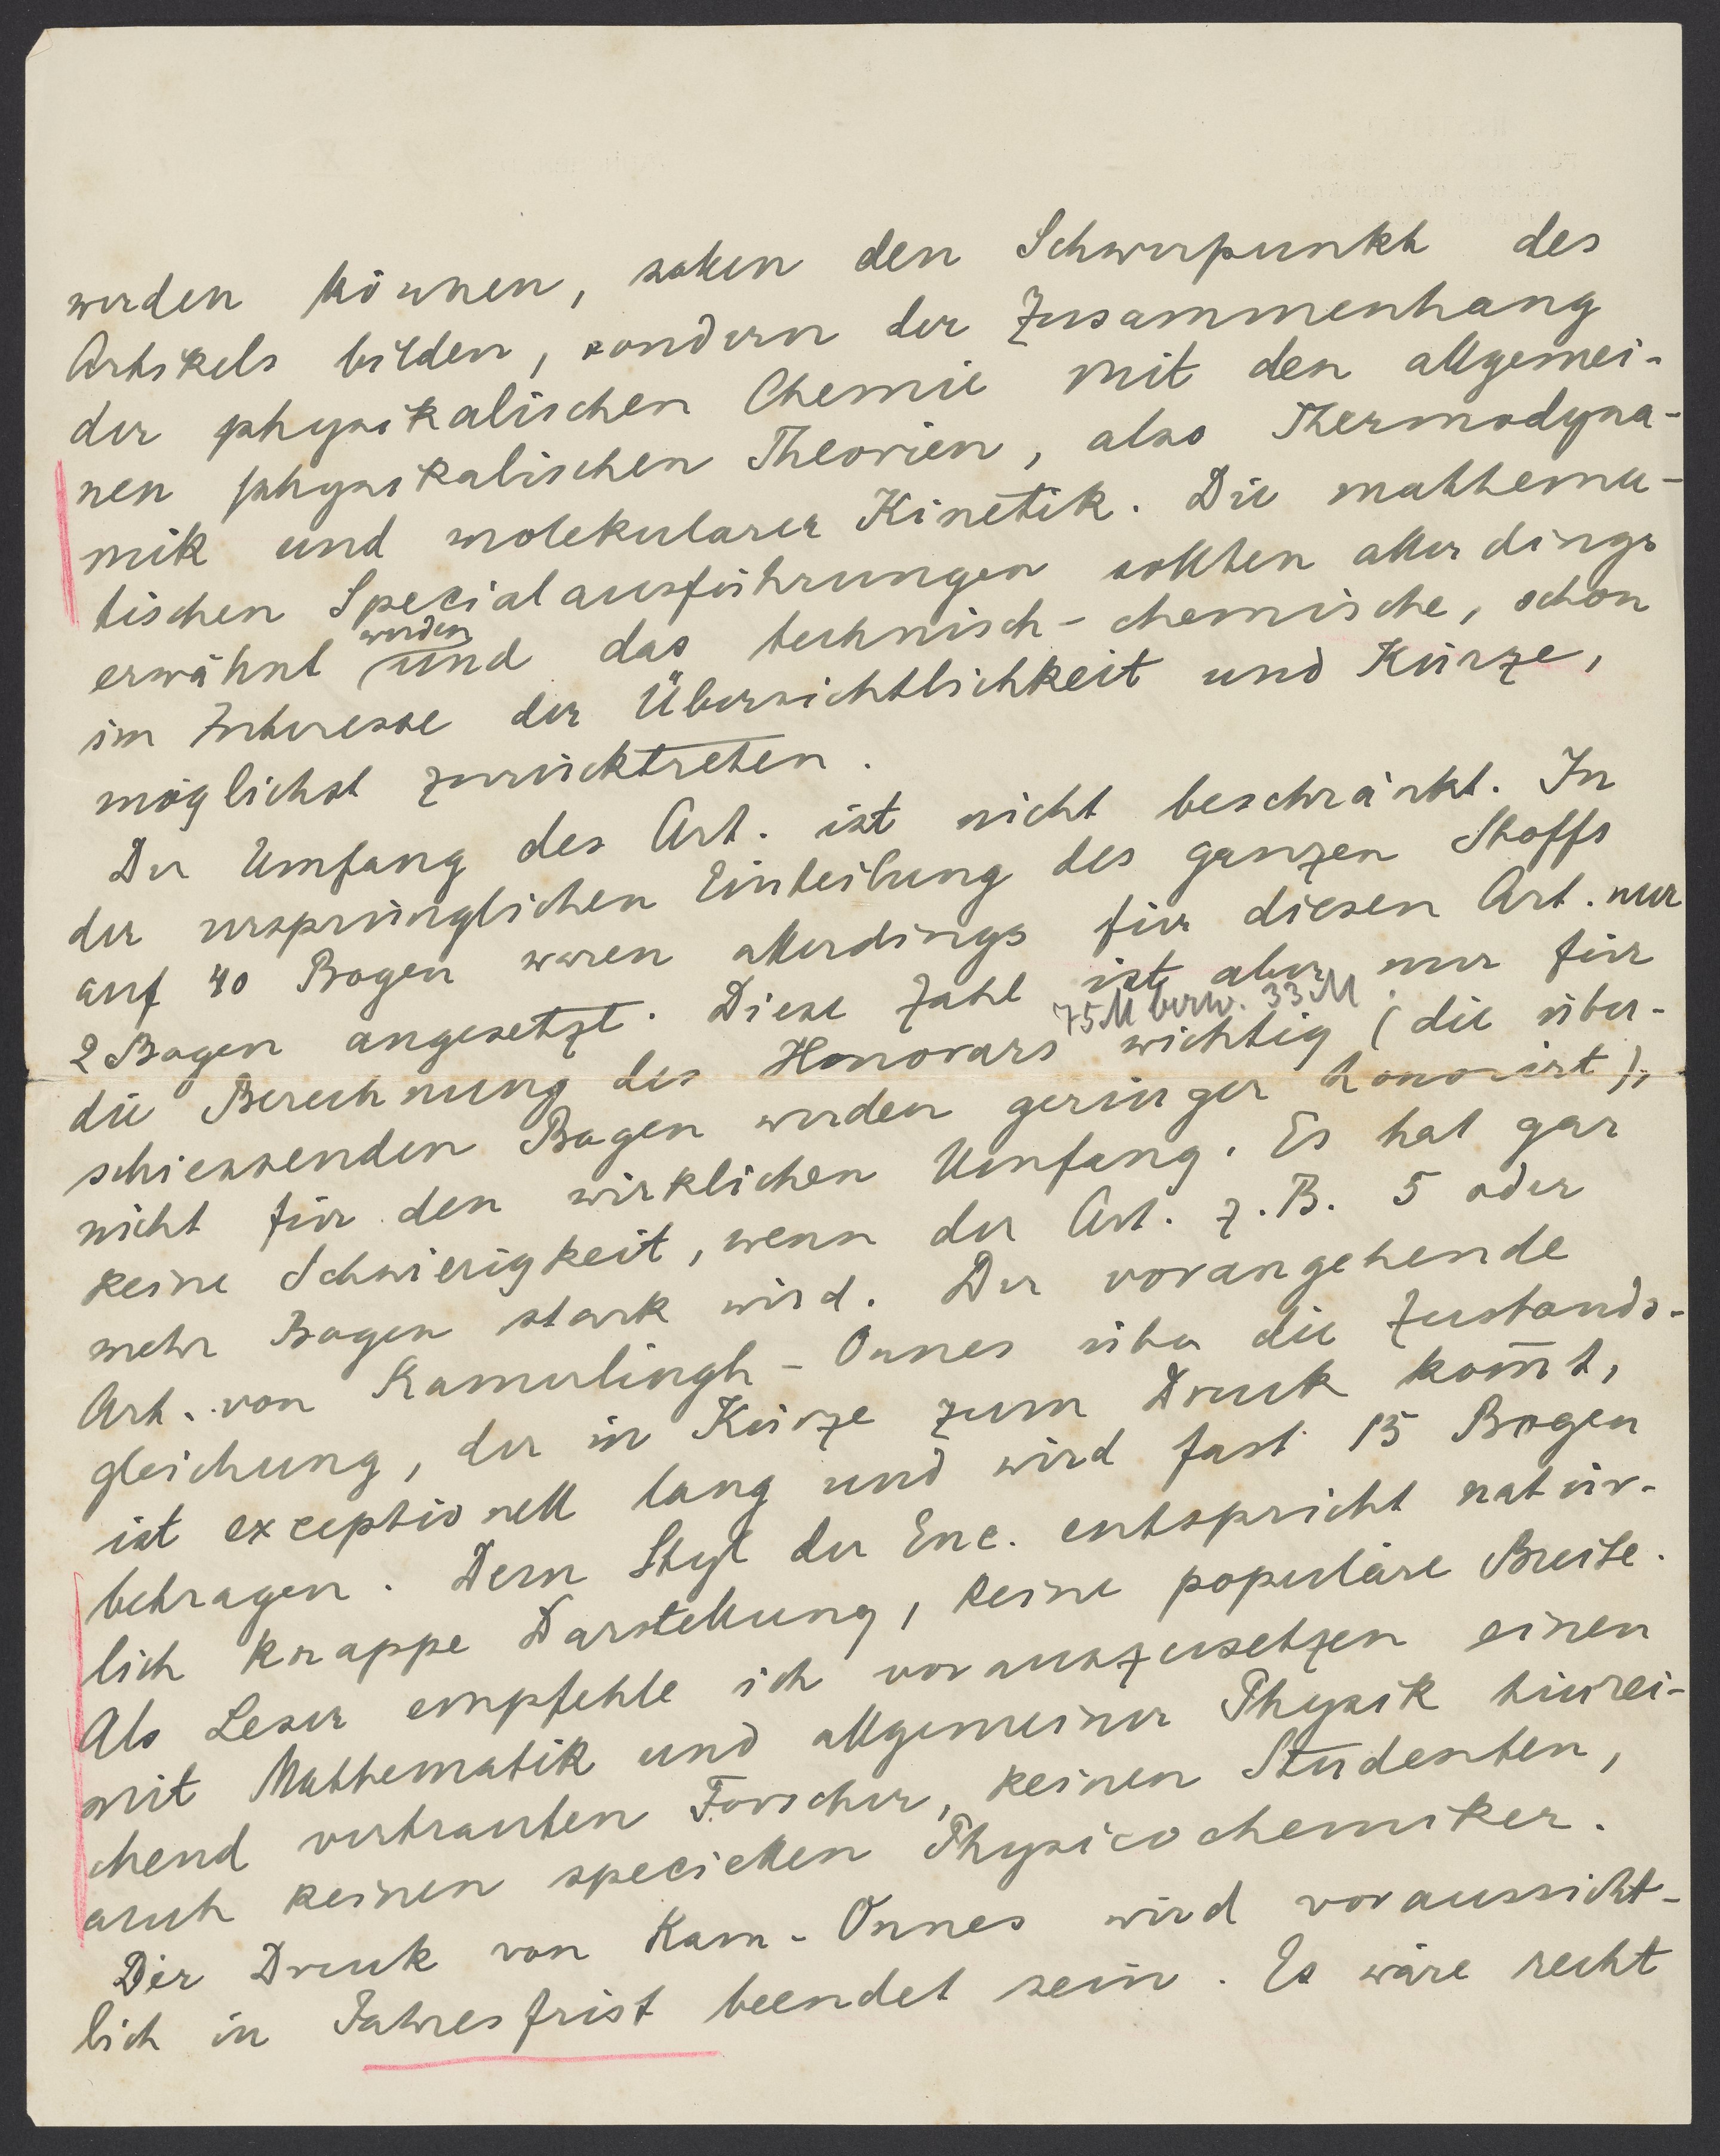 werden können, sollen den Schwerpunkt des
Artikels bilden, sondern der Zusammenhang
der physikalischen Chemie mit den allgemei-
nen physikalischen Theorien, also Thermodyna-
mik und molekularer Kinetik. Die mathema-
tischen Specialausführungen sollten allerdings
erwähnt werden und das technisch-chemische, schon
im Interesse der Übersichtlichkeit und Kürze,
möglichst zurücktreten.
Der Umfang des Art. ist nicht beschränkt. In
der ursprünglichen Einteilung des ganzen Stoffs
auf 40 Bogen waren allerdings für diesen Art. nur
2 Bogen angesetzt. Diese Zahl ist aber nur für
75 M bezw. 33 M
die Berechnung des Honorars wichtig (die über-
schiessenden Bogen werden geringer honorirt),
nicht für den wirklichen Umfang. Es hat gar
keine Schwierigkeit, wenn der Art. z.B. 5 oder
mehr Bogen stark wird. Der vorangehende
Art. von Kamerlingh-Onnes über die Zustands-
gleichung, der in Kürze zum Druck kom̄t,
ist exceptionell lang und wird fast 15 Bogen
betragen. Dem Styl der Enc. entspricht natür-
lich knappe Darstellung, keine populäre Breite.
Als Leser empfehle ich vorauszusetzen einen
mit Mathematik und allgemeiner Physik hinrei-
chend vertrauten Forscher, keinen Studenten,
auch keinen speciellen Physicochemiker.
Der Druck von Kam-Onnes wird voraussicht-
lich in Jahresfrist beendet sein. Es wäre recht